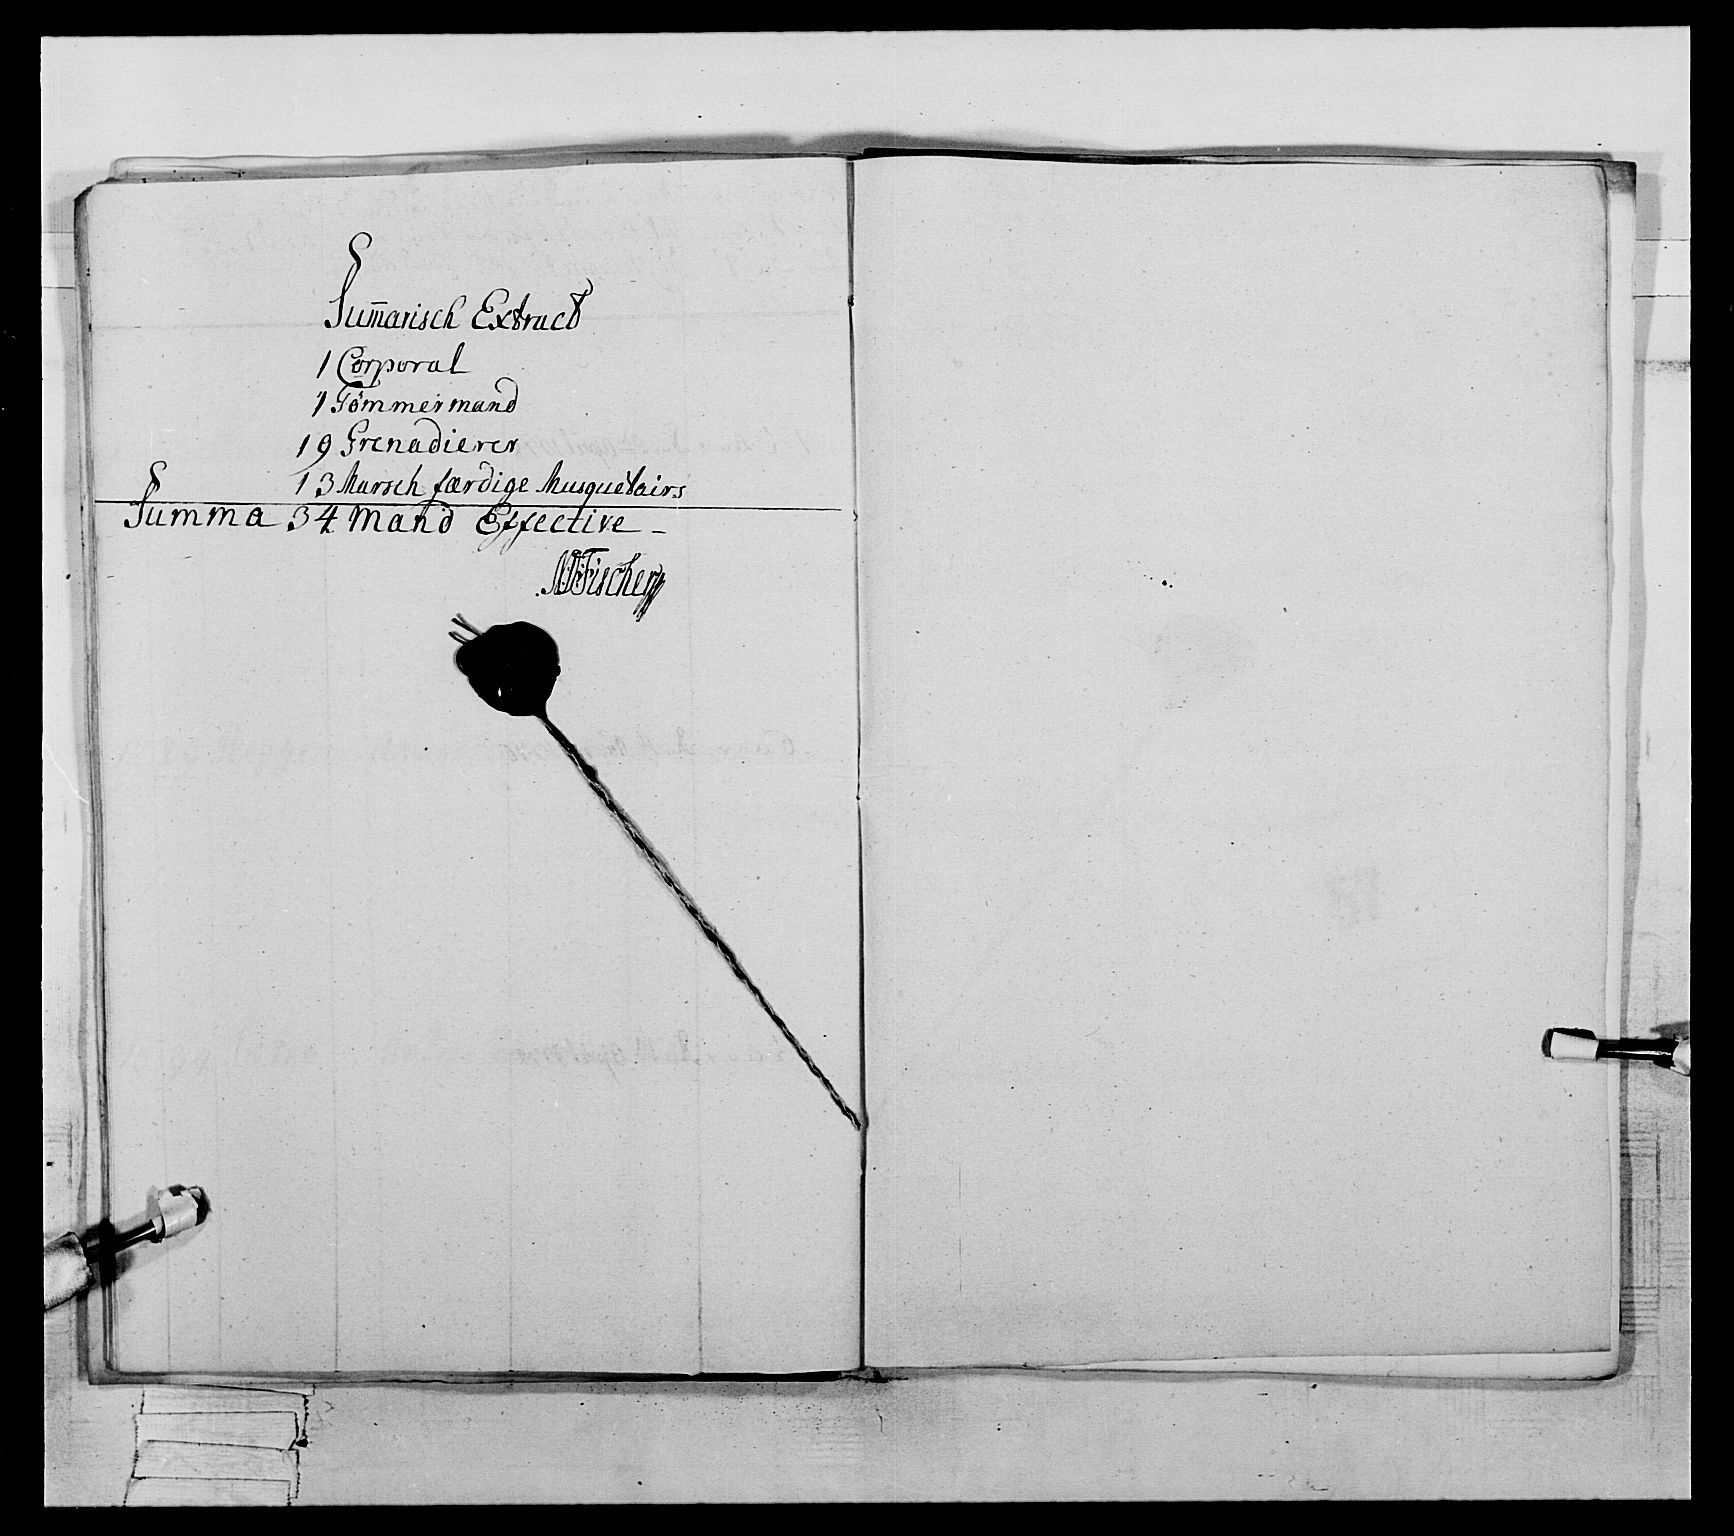 Sum̄arisch Extract
1 Corporal
1 Tömmermand
19 Grenadierer
13 Marsch færdige Musquetairs
Summa 34 Mand Effective -
Fischer